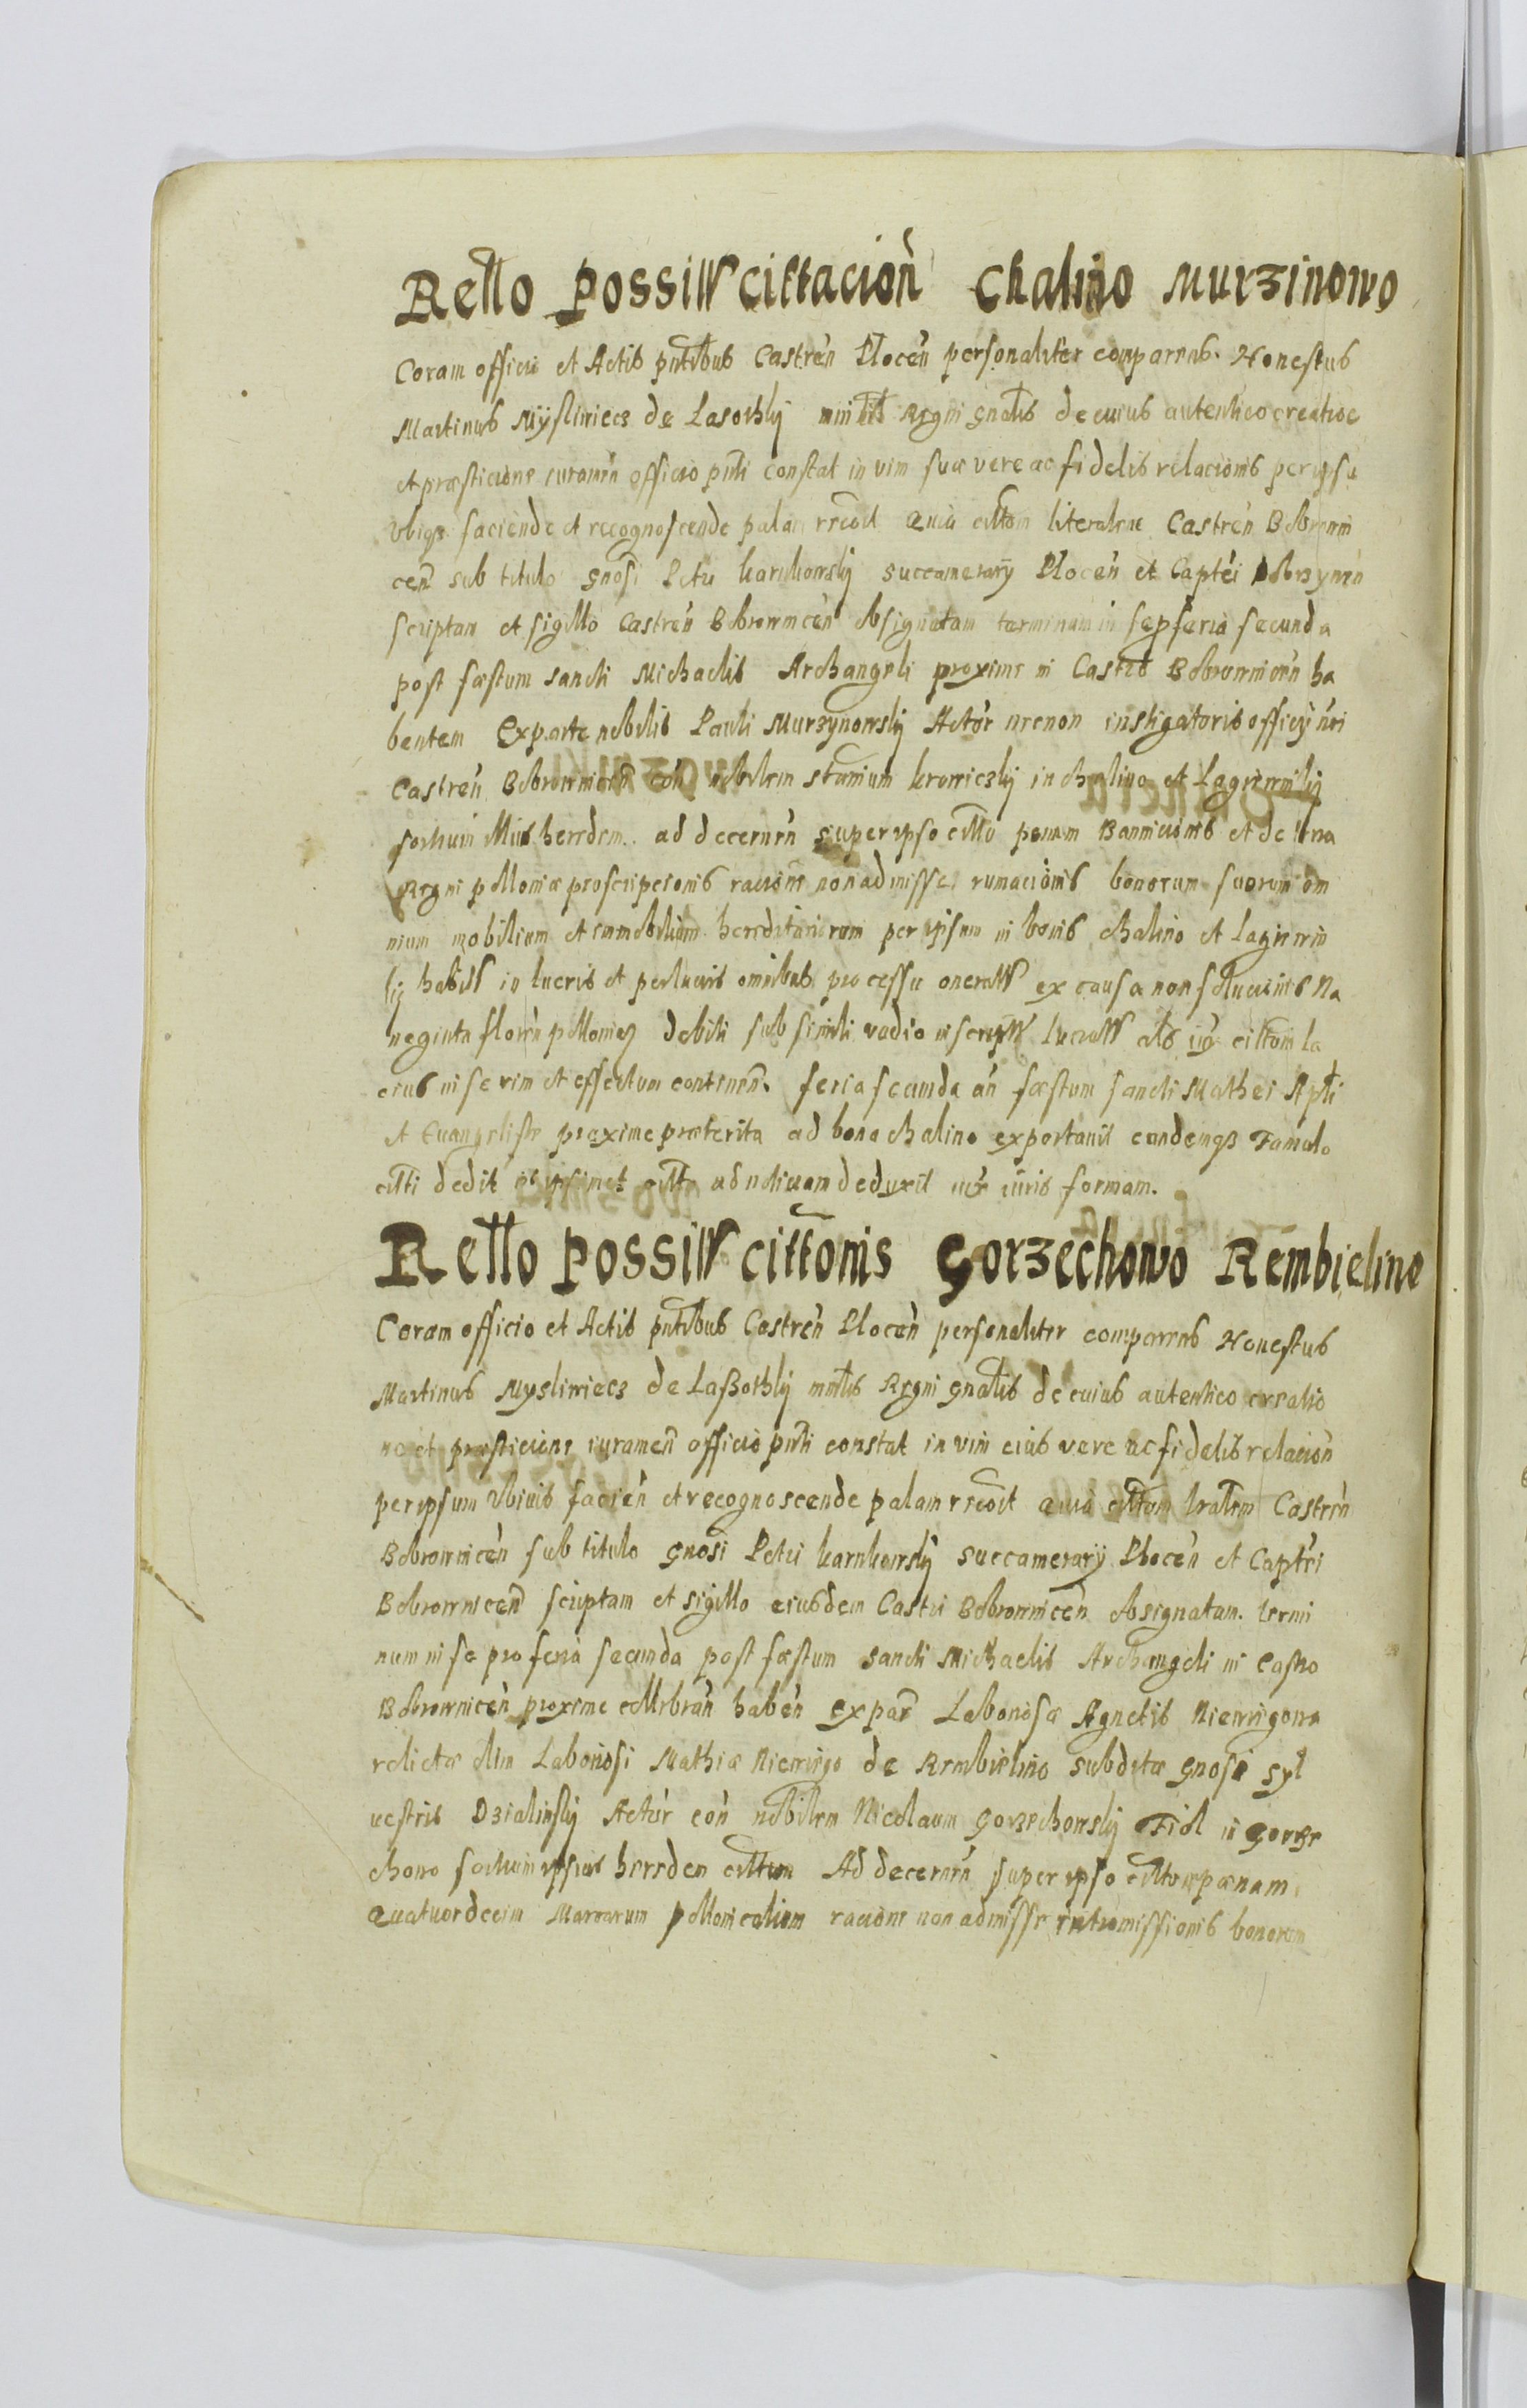 Rello possill cittacion Chalino Murzinowo
Coram officio et Actis pntibus Castren Plocen personaliter comparens. Honestus
Martinus Mysliwiecz de Lasothky minlis Regni gnalis de cuius autentico creatioe
et præsticione iuramen officio pnti constat in vim suæ vere ac fidelis relacionis per ipsu
ubiqз faciende et recognoscende palam recoit Quia cittom literalem Castren Bobrowni
cen sub titulo gnosi Petri karnkowsky succamerary Plocen et Captei Dobrzynen
scriptam et sigillo Castren Bobrownicen obsignatam terminum in se pro feria secunda
post fæstum sancti Michaelis Archangeli proxime in Castro Bobrownicen ha
bentem Ex parte nobilis Pauli Murzynowsky Actor necnon instigatoris officy nri
Castren Bobrownicen con nobilem stanium krowiczky in chalino et Lagiewniky
sortium illius heredem. ad decernen super ipso citto penam Bannicionis et de
Regni polloniæ proscripcionis racione non admisse rumacionis bonorum suorum om
nium mobilium et immobilium hereditariorum per ipsum in bonis chalino et Lagiewni
ky habitt in lucris et perlucris omnibus processu oneratt ex causa non solucionis Na
neginta floren pollonicz debiti sub simili vadio inscriptt lucratt als iux cittom la
cius in se rim et effectum continen. feria secunda an fæstum sancti Mathei Apli
et Evangeliste proxime præterita ad bona chalino exportavit eandemqз Famulo
citti dedit et ipsimet citto ad noticiam deduxit iux iuris formam.
Rello possill cittonis Gorzechowo Rembielino
Coram officio et Actis pntibus Castren Plocen personaliter comparens Honestus
Martinus Mysliwiecz de Laßothky minlis Regni gnalis de cuius autentico creatio
ne et præsticione iuramen officio pnti constat in vim eius vere ac fidelis relacion
per ipsum ubivis facien et recognoscende palam recoit Quia cittom lralem Castren
Bobrownicen sub titulo gnosi Petri karnkowsky succamerary Plocen et Captei
Bobrownicen scriptam et sigillo eiusdem Castri Bobrownicen obsignatam. termi
num in se pro feria secunda post fæstum sancti Michaelis Archangeli in Castro
Bobrownicen proxime cellebran haben Ex par Laboriosæ Agnetis Niemirgowa
relictæ olim Laboriosi Mathiæ Niemirgo de Rembielino subditæ gnosi syl
vestris Dzialinsky Actor con nobilem Nicolaum Gorzechowsky Fidl in Gorze
chowo sortium ipsius heredem cittum Ad decernen super ipso citto pænam
Quatuordecim Marcarum pollonicalium racione non admisse intromissionis bonorum